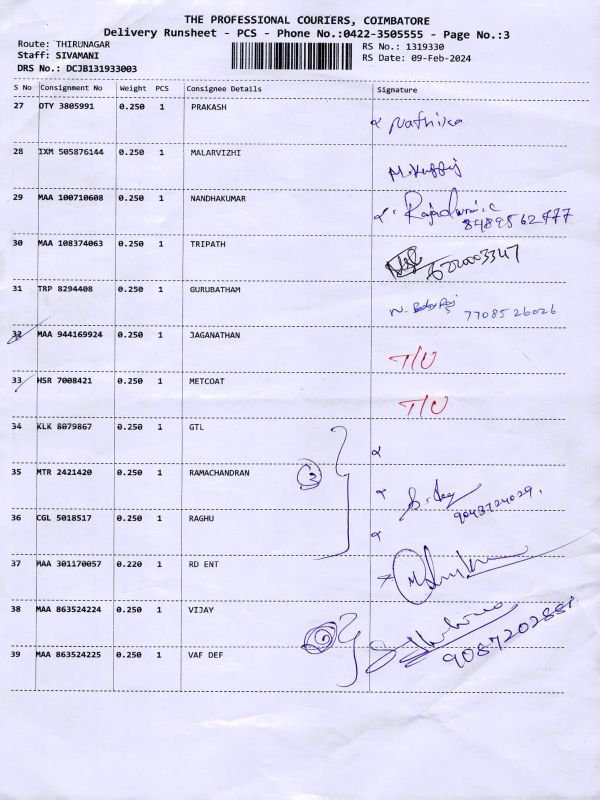 THE PROFESSIONAL COURIERS, COIMBATORE
Delivery Runsheet - PCS - Phone No.:0422-3505555 - Page No.:3
Route: THIRUNAGAR RS No.: 1319330
Staff: SIVAMANI RS Date: 09-Feb-2024
DRS No.: DCJB131933003
S No Consignment No Weight PCS Consignee Details Signature
27 DTY 3805991 0.250 1 PRAKASH
28 IXM 505876144 0.250 1 MALARVIZHI
29 MAA 100710608 0.250 1 NANDHAKUMAR
8489562477
30 MAA 108374063 0.250 1 TRIPATH
31 TRP 8294408 0.250 1 GURUBATHAM
7708526026
32 MAA 944169924 0.250 1 JAGANATHAN
T/U
33 HSR 7008421 0.250 1 METCOAT
T/U
34 KLK 8079867 0.250 1 GTL
35 MTR 2421420 0.250 1 RAMACHANDRAN
3
9043724029.
36 CGL 5018517 0.250 1 RAGHU
37 MAA 301170057 0.220 1 RD ENT
38 MAA 863524224 0.250 1 VIJAY
39 MAA 863524225 0.250 1 VAF DEF